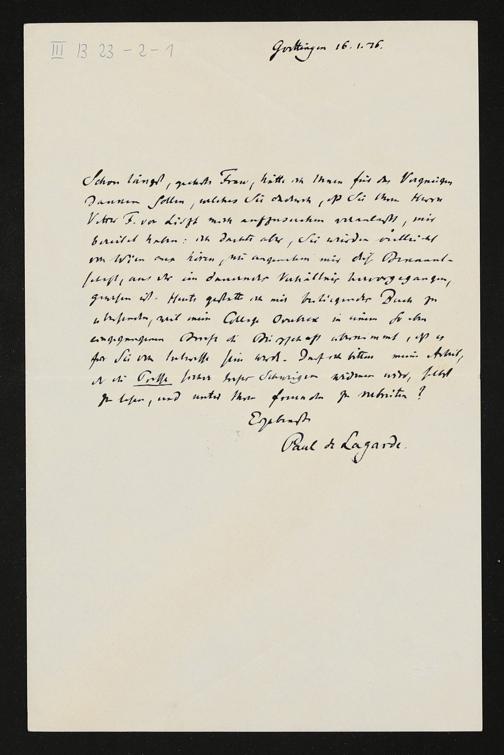 III B 23 - 2 - 1
Goettingen 16. 1. 76.
Schon längst, geehrte Frau, hätte ich Ihnen für das Vergnügen
danken sollen, welches Sie dadurch, daß Sie Ihren Herrn
Vetter F. von Liszt mich aufzusuchen veranlaßt, mir
bereitet haben: ich dachte aber, Sie würden vielleicht
von Wien aus hören, wie angenehm mir diese Bekannt-
schaft, aus der ein dauerndes Verhältnis hervorgegangen,
gewesen ist. Heute gestatte ich mir beiliegendes Buch zu
übersenden, weil mein College Overbeck in einem so eben
eingegangenen Briefe die Bürgschaft übernimmt, daß es
für Sie von Interesse sein werde. Darf ich bitten meine Arbeit,
der die Presse bisher tiefes Schweigen widmen wird, selbst
zu lesen, und unter Ihren Freunden zu verbreiten?
Ergebenst
Paul de Lagarde.